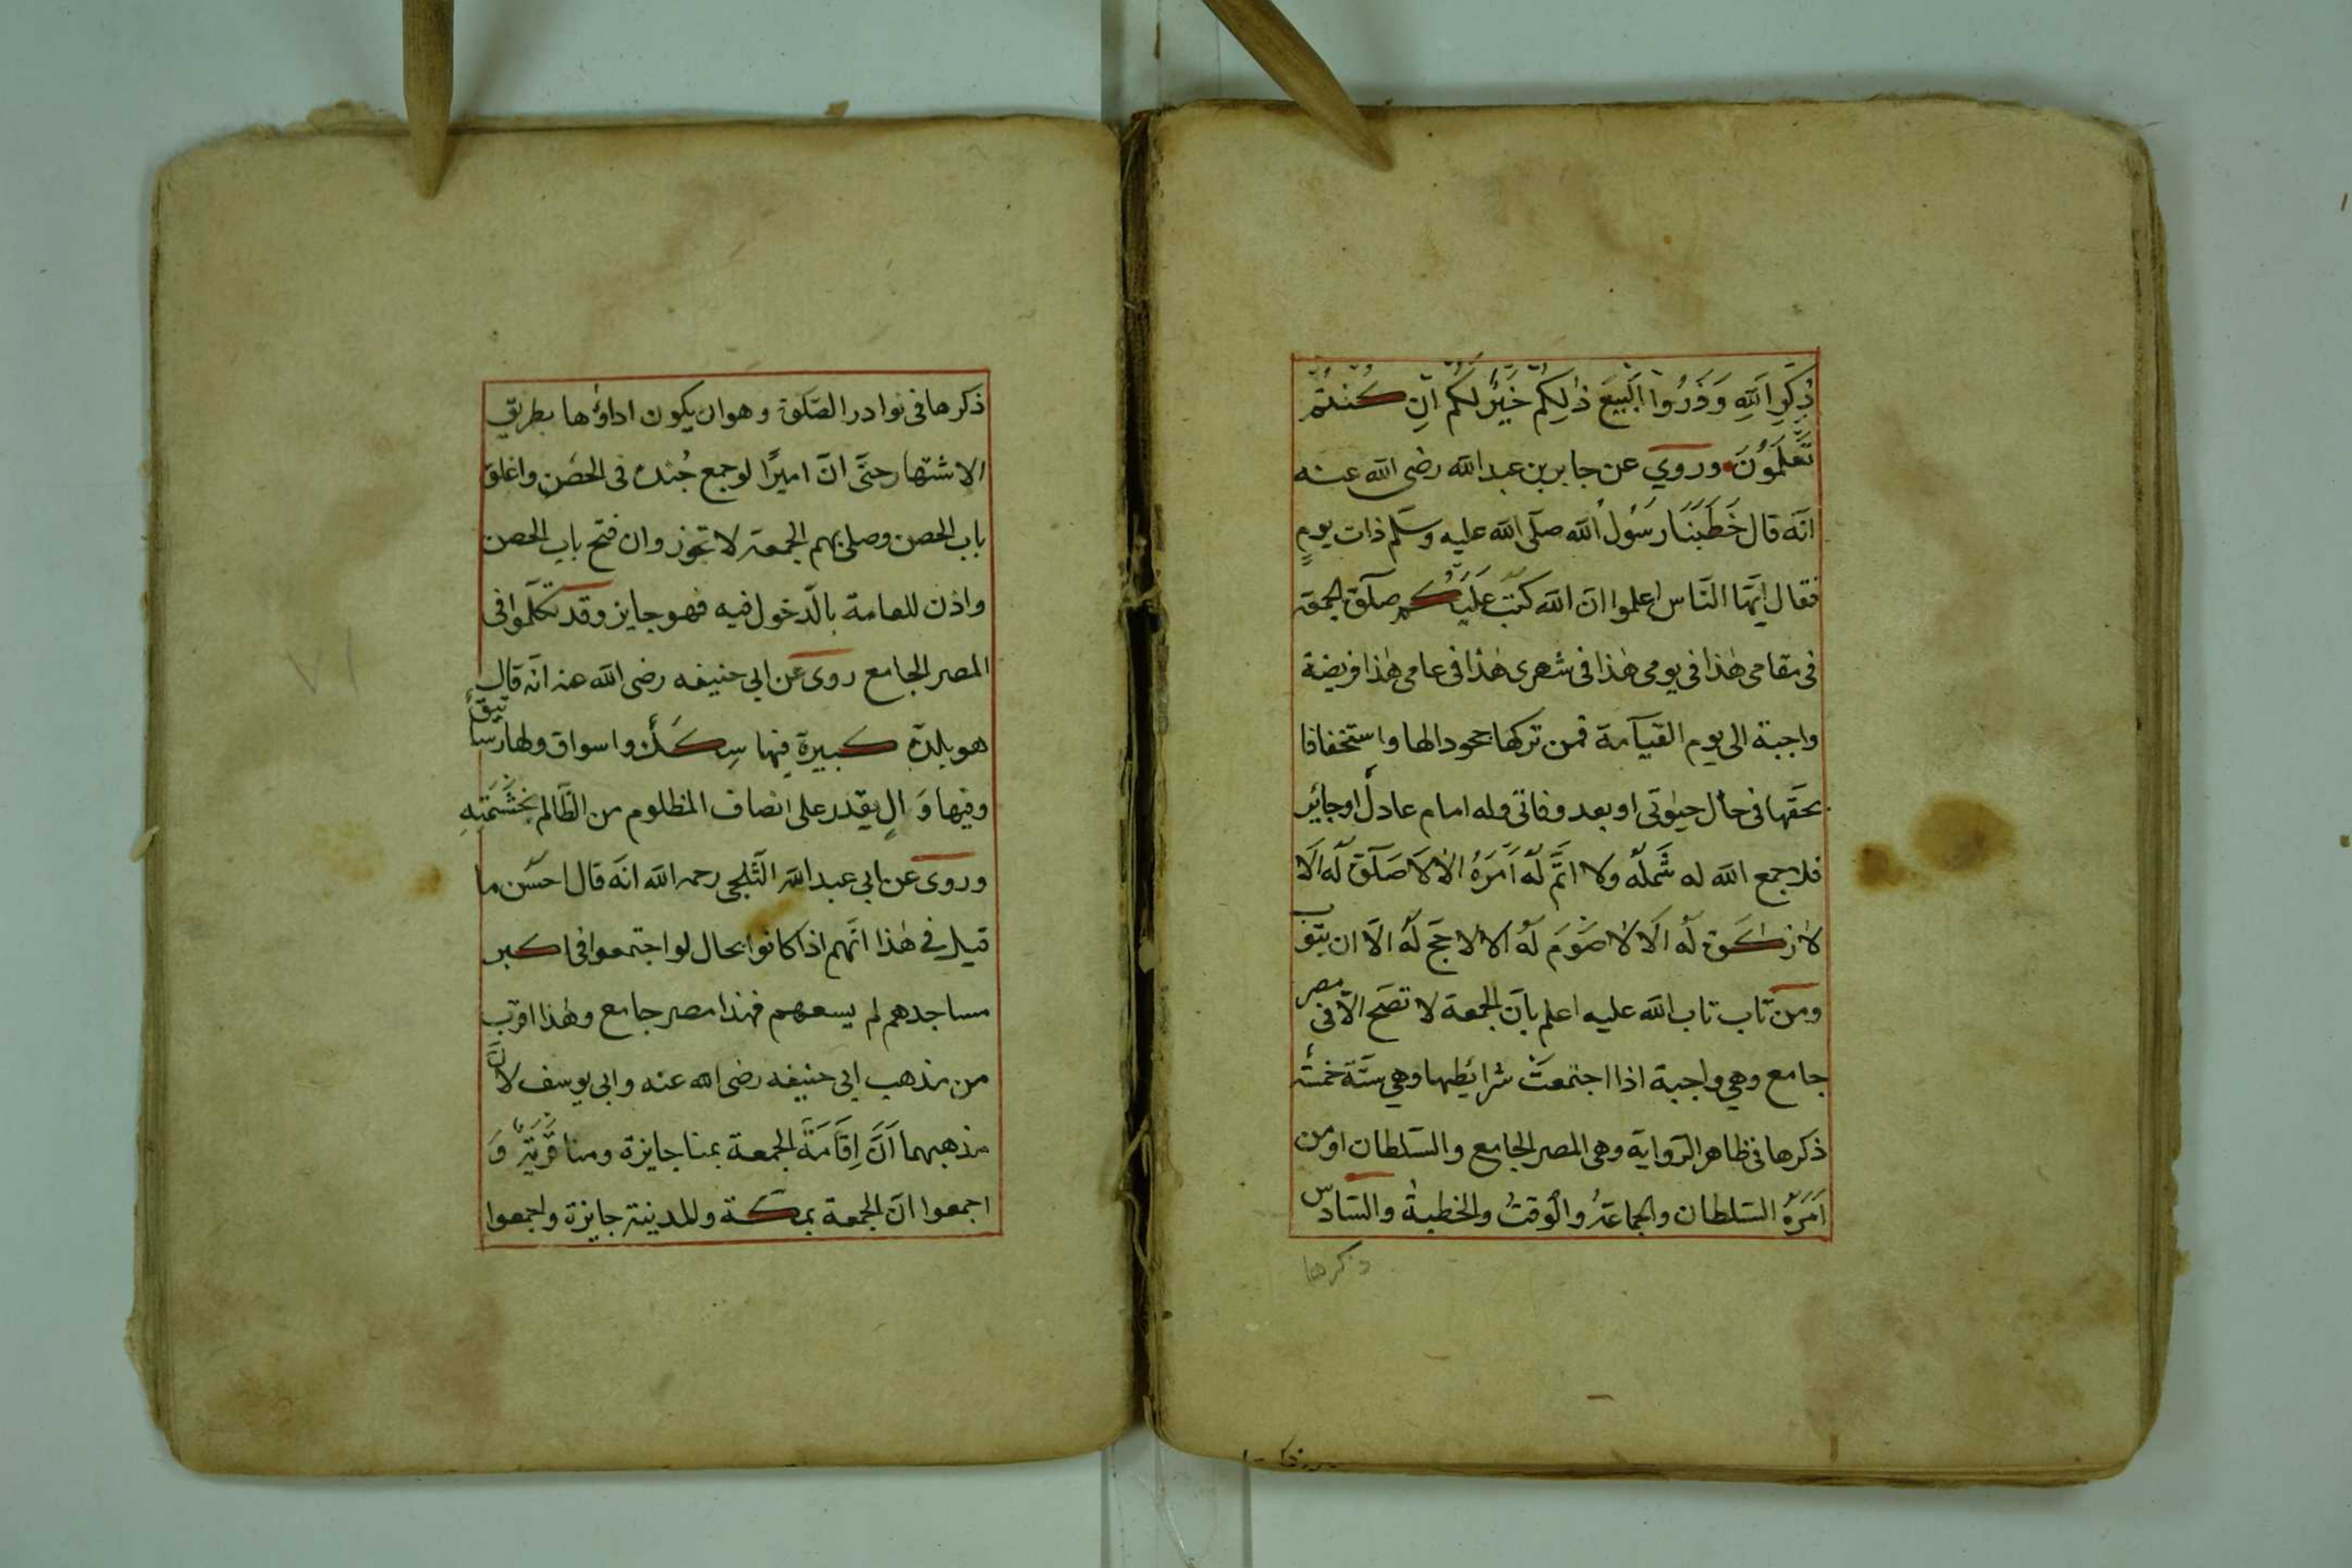 ذِكْرِ اللهِ وَذَرُوا الْبَيْعَ ذٰلِكُمْ خَيْرٌ لَكُمْ اِنْ كُنْتُمْ
تَعْلَمُوْنَ وروي عن جابر بن عبد الله رضى الله عنه
انّه قال خَطَبَنَا رَسُولُ الله صلّى الله عليه وسلّم ذات يومٍ
فقال ايّها النّاس اعلموا انّ الله كتب عَلَيْكُم صلٰوة الجمعة
فى مقامى هٰذا فى يومى هٰذا فى شهرى هٰذا فى عامى هٰذا فريضة
واجبة الى يوم القيٰامة فمن تركها جحودا لها واستخفافا
بحقّها فى حال حيٰوتى او بعد وفاتى وله امام عادل او جائر
فلا جمع الله له شَملَه ولا اتمّ لَه اَمْرَهُ الا لا صَلٰوة لَه الَا
لا زكٰوة لَه الَا لا صَوْمَ لَهُ الا لا حَجّ لَهُ الّا ان يتوب
ومن تاب تاب الله عليه اعلم بانّ الجمعة لا تصحّ الّا فى مصر
جامع وهي واجبة اذا اجتمعتْ شرائطها وهي ستّة خمسة
ذكرها فى ظاهر الرّواية وهى المصر الجامع والسّلطان او من
اَمَرَهُ السّلطان والجماعةُ والوقتُ والخطبةُ والسّادس
ذكرها
ذكرها فى نوادر الصّلٰوة وهو ان يكون اداؤها بطريق
الاشتهار حتّى انّ اميرًا لو جمع جُنده فى الحصن واغلق
باب الحصن وصلى بهم الجمعة لا تجوز وان فتح باب الحصن
واذن للعامة بالدّخول فيه فهو جايز وقد تكلّموا فى
المصر الجامع روى عن ابى حنيفه رضى الله عنه انّه قال
هو بلدة كبيرة فيها سِكَكٌ واسواق ولها رساتيق
وفيها وَالٍ يقدر على انصاف المظلوم من الظّالم بحَشَمَتِهِ
وروى عن ابى عبد الله الثّلجى رحمه الله انّه قال احسَن ما
قيل فى هٰذا انّهم اذا كانوا بحال لو اجتمعوا فى اكبر
مساجدهم لم يسعهم فهذا مصر جامع وهٰذا اقرب
من مذهب ابى حنيفه رضى الله عنه وابى يوسف لانّ
مذهبهما اَنَّ اِقَامَةَ الجمعة بمنا جايزة ومنا قَرْيَةٌ وَ
اجمعوا انّ الجمعة بمكّة والمدينة جايزة واجمعوا